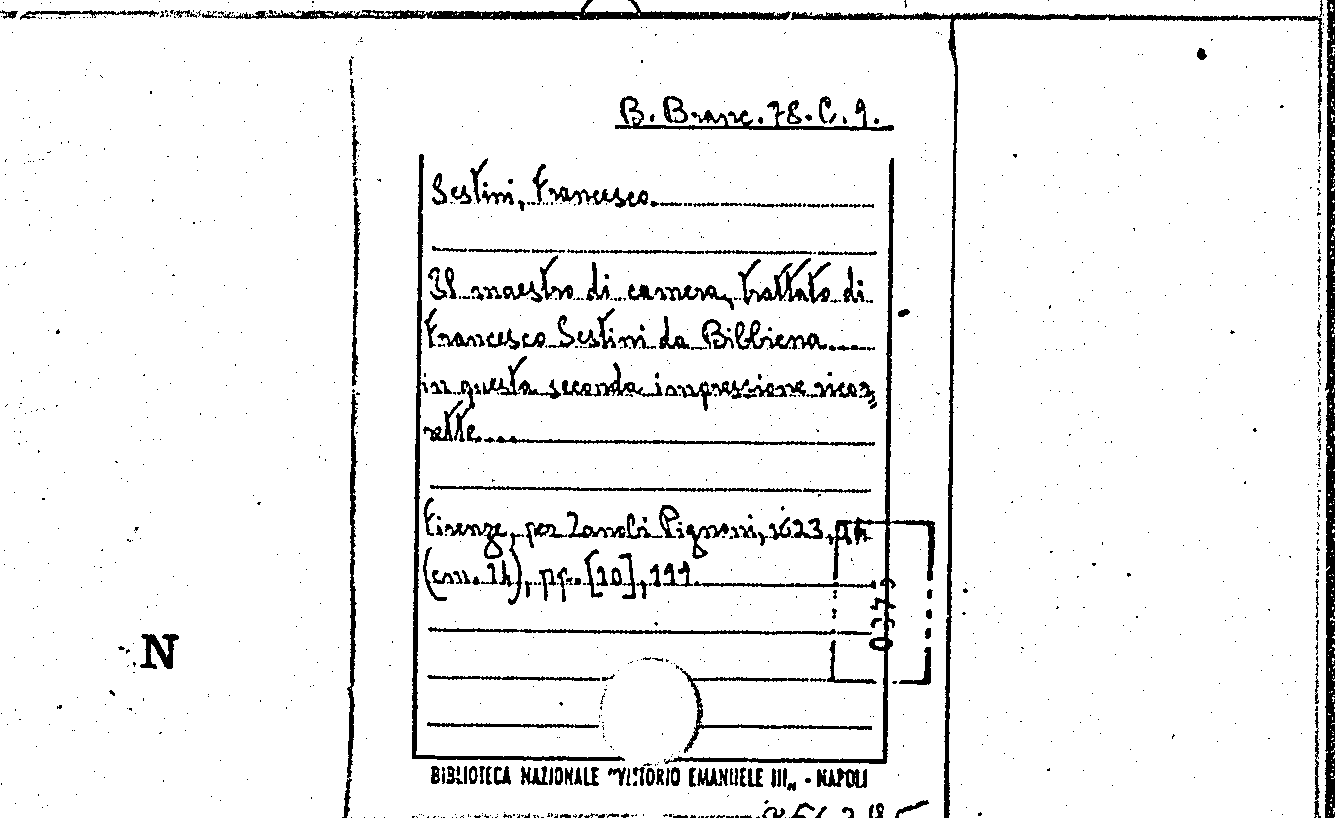 B. Branc. 78. C. 9.
Sestini, Francesco.
Il maestro di camera, trattato di
Francesco Sestini da Bibbiena....
in questa seconda impressione ricor=
rette....
Firenze, per Zanobi Pignoni, 1623,
(cm. 14), pp. [10], 111.
N
BIBLIOTECA NAZIONALE "VITTORIO EMANUELE III„ - NAPOLI